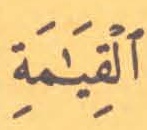 ٱلْقِيَـٰمَةِ